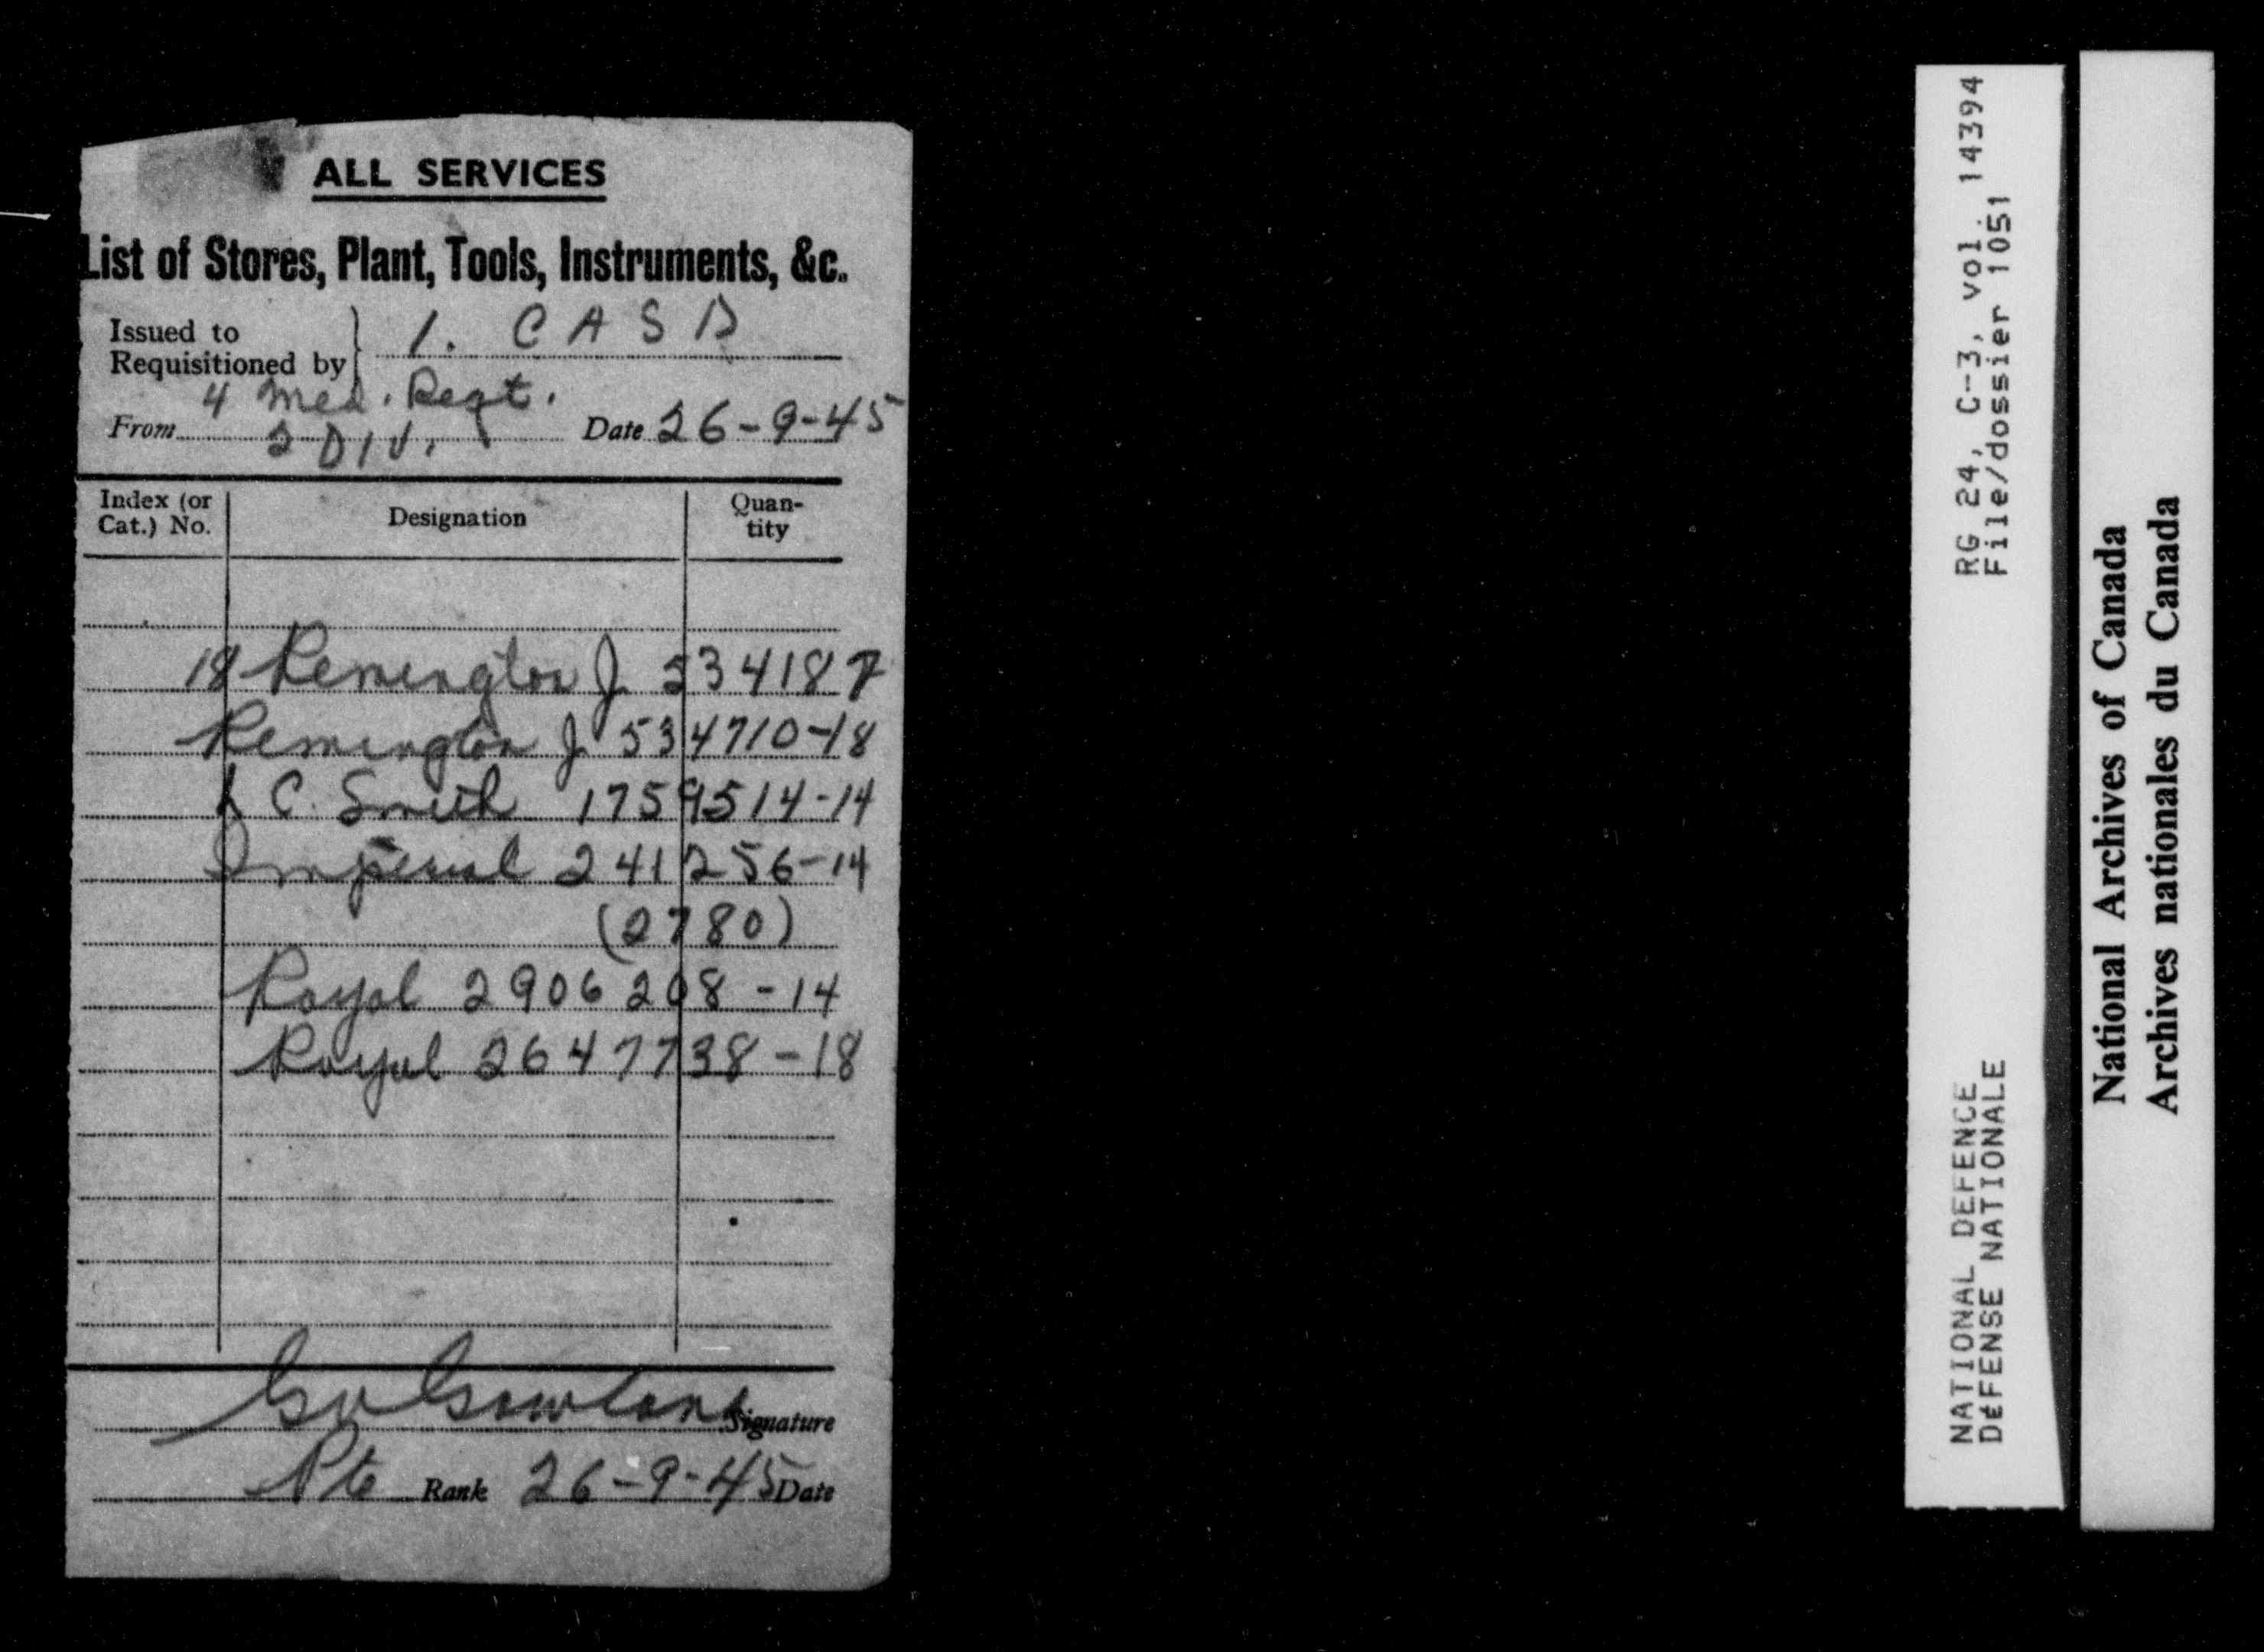 ALL SERVICES
List of Stores, Plant, Tools, Instruments, &c.
Issued to
Requisitioned by } 1. C A S D
4 Med. Regt.
From 2 DIV. Date 26-9-45
Index (or Cat.) No. Designation Quan-tity
18 Remington J 534187
Remington J 534710-18
L C. Smith 1759514-14
Imperial 241256-14
(2780)
Royal 2906208-14
Royal 2647738-18
Signature
Pte Rank 26-9-45 Date
RG 24, C-3, vol. 14394
File/dossier 1051
NATIONAL DEFENCE
DÉFENSE NATIONALE
National Archives of Canada
Archives nationales du Canada